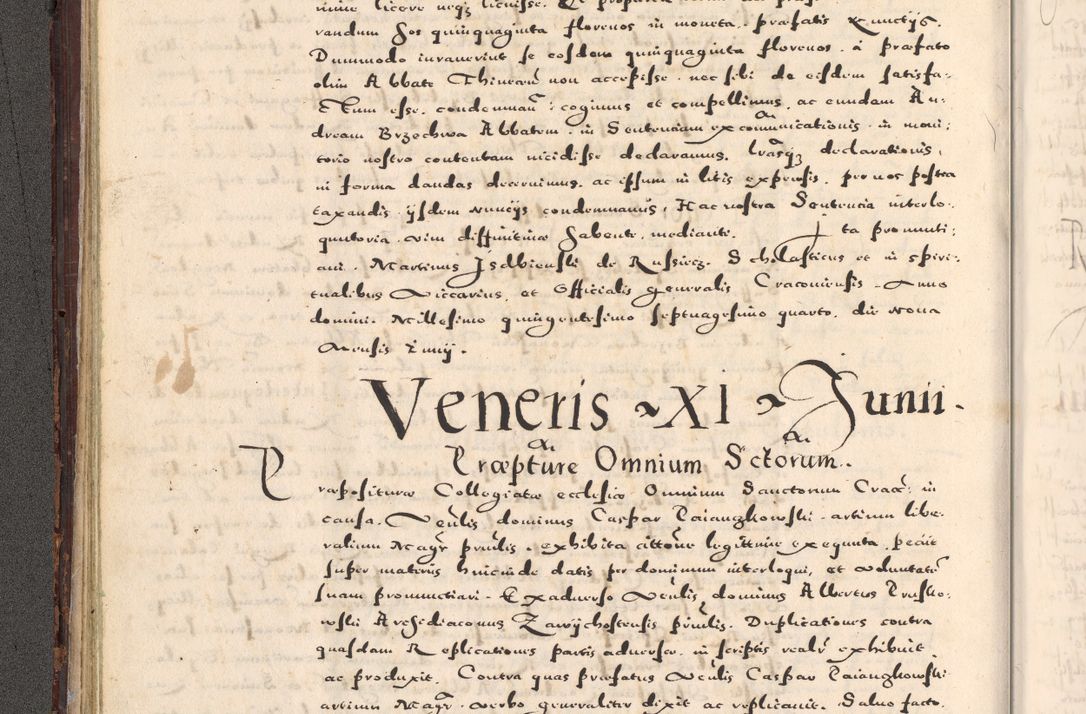 randum hos quinquaginta florenos in moneta. præfatis Nunctijs.
Dummodo iuraverint se eosdem quinquaginta florenos. à præfato
olim Abbate Thinecen non accepisse. nec sibi de eisdem satisfa-
ctum esse. condemnan: cogimus et compellimus, ac eundem An-
dream Brzechwa Abbatem. in Sententiam excommunicationis. in moni:
torio nostro contentam incidisse declaramus. lrasq declarationis,
in forma dandas decernimus. ac ipsum in litis expensis. per nos postea
taxandis. ijsdem Nuncijs condemnamus, Hac nostra Sentencia interlo-
quutoria. vim diffinitivæ habente. mediante. Ita pronunti:
avi. Martinus Isdbienski de Russiecz. Scholasticus et in spiri-
tualibus Viccarius, et Officialis generalis Cracoviensis. Anno
domini. Millesimo quingentesimo septuagesimo quarto, die nona
Mensis Iunij.
Veneris XI Junii.
Præpture Omnium Sctorum.
Præposituræ Collegiatæ ecclesiæ Omnium Sanctorum Crac: in
causa. Venlis dominus Caspar Paiangkowski. artium libe-
ralium Magr prnlis. exhibita cittone legittime exequuta, peciit
super materiis hincinde datis per dominum interloqui, et voluntatem
suam pronunctiari. Exadverso Venlis dominus Albertus Prusko-
wski Archidiaconus Zawychostensis prnlis. Duplicationes contra
quasdam Replicationes partis adversæ. in scriptis realr exhibuit
ac produxit. Contra quas præfatus Venlis Caspar Paiangkowski
artium Magr. verbo generaliter dixit ac replicavit. Salvo facto.